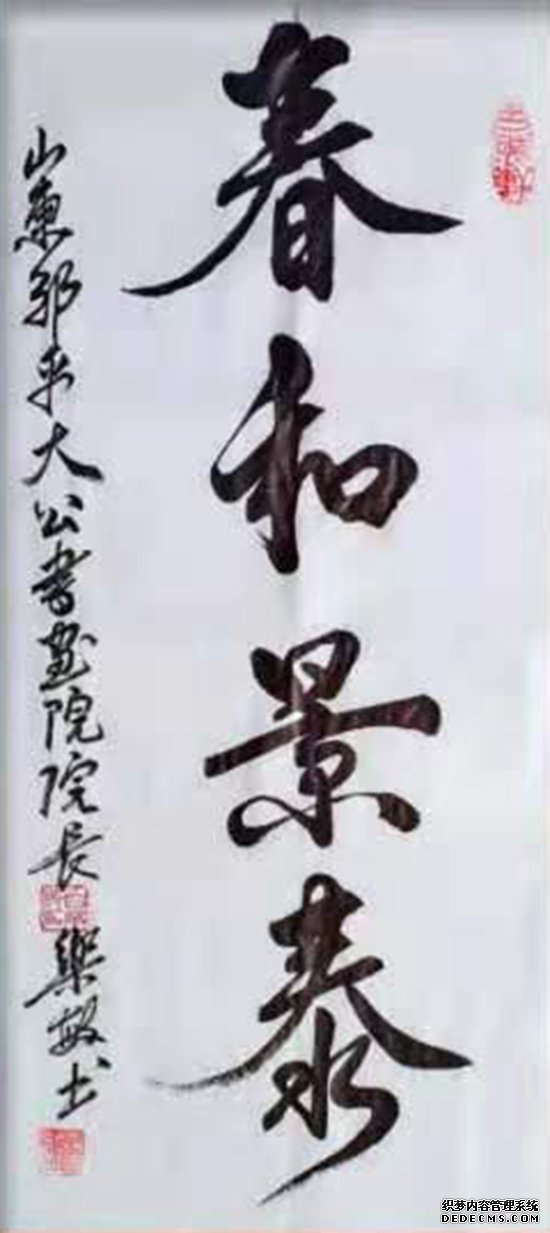 春和景泰
山東鄒平大公書畫院院長
樂敏书
织梦内容管理系统
DEDECMS.COM